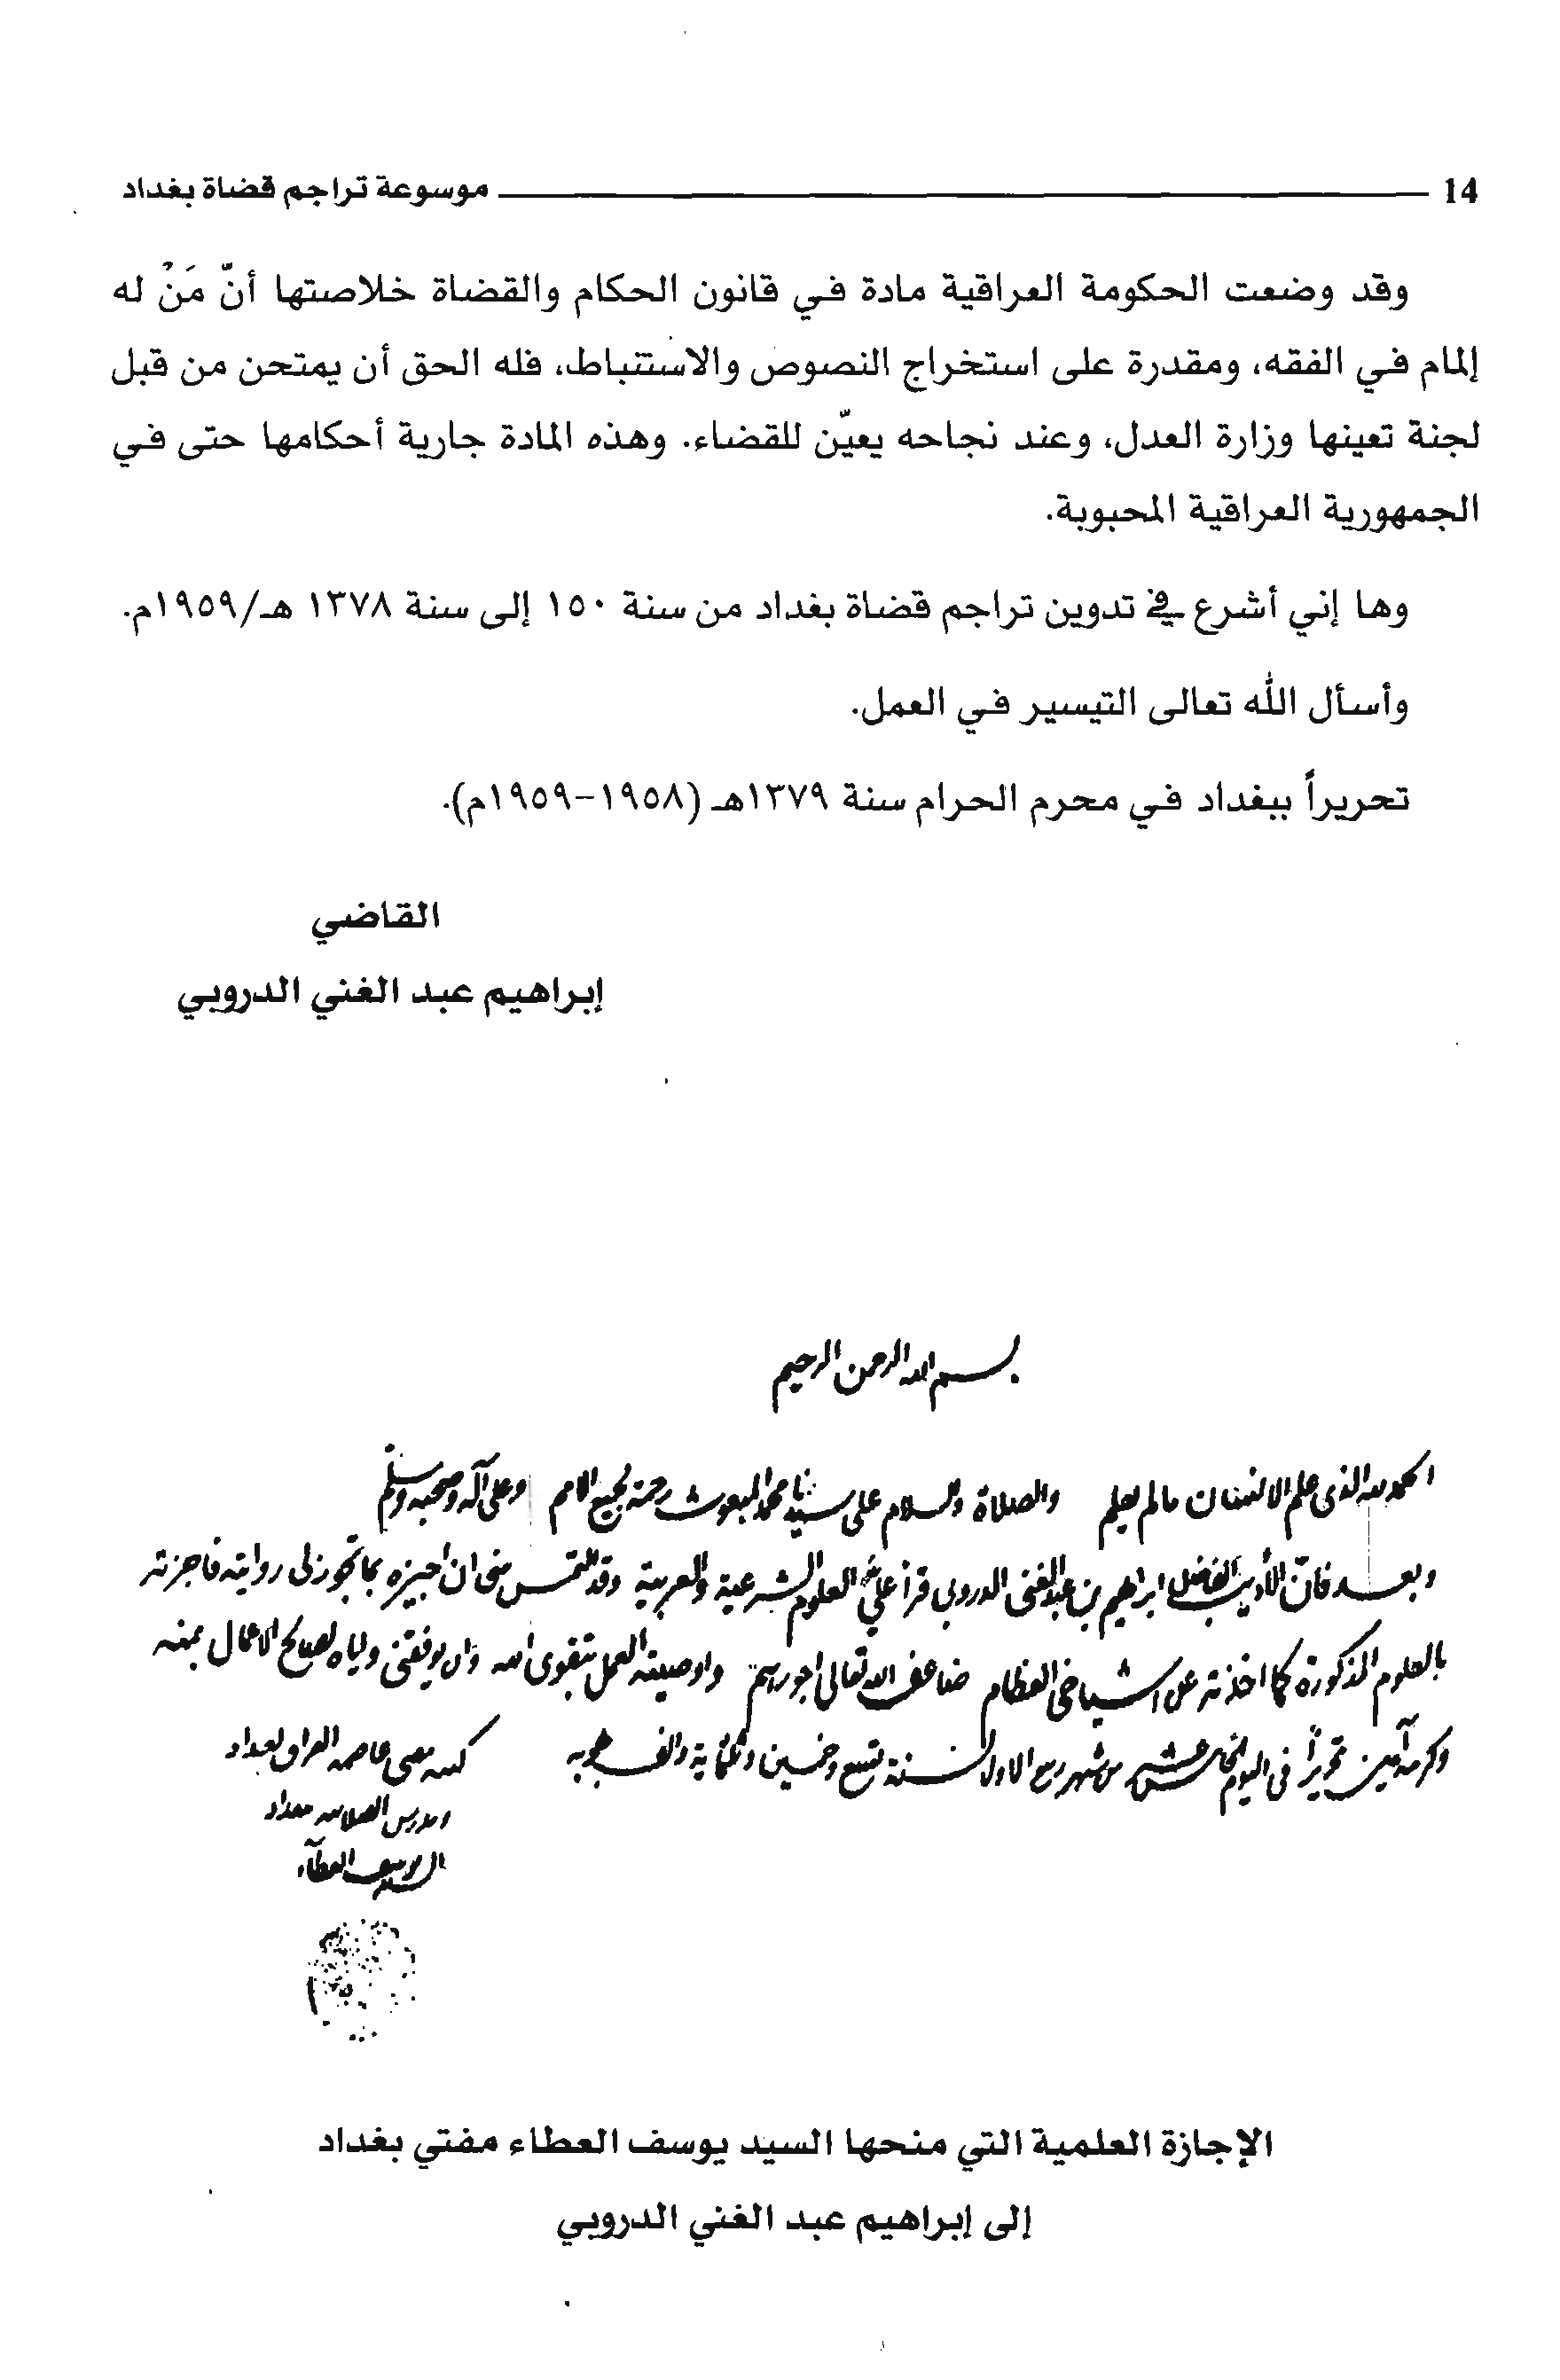 14 موسوعة تراجم قضاة بغداد
وقد وضعت الحكومة العراقية مادة في قانون الحكام والقضاة خلاصتها أنّ مَنْ له
إلمام في الفقه، ومقدرة على استخراج النصوص والاستنباط، فله الحق أن يمتحن من قبل
لجنة تعينها وزارة العدل، وعند نجاحه يعيّن للقضاء. وهذه المادة جارية أحكامها حتى في
الجمهورية العراقية المحبوبة.
وها إني أشرع في تدوين تراجم قضاة بغداد من سنة ١٥٠ إلى سنة ١٣٧٨ هـ/١٩٥٩م.
وأسأل الله تعالى التيسير في العمل.
تحريراً ببغداد في محرم الحرام سنة ١٣٧٩هـ (١٩٥٨-١٩٥٩م).
القاضي
إبراهيم عبد الغني الدروبي
بسم الله الرحمن الرحيم
الحمد لله الذي علم الانسان مالم يعلم والصلاة والسلام على سيدنا محمد المبعوث رحمة لجميع الامم وعلى آله وصحبه وسلم
وبعد فان الأديب الفاضل ابراهيم بن عبد الغني الدروبي قرأ عليّ العلوم الشرعية والعربية وقد التمس مني ان اجيزه بما تجوز لي روايته فاجزته
بالعلوم المذكورة كما اخذته عن اشياخي العظام ضاعف الله تعالى اجورهم واوصيته العمل بتقوى الله وان يوفقني واياه لصالح الاعمال بمنه
وكرمه آمين تحريراً في اليوم الخامس عشر من شهر ربيع الاول لسنة تسع وخمسين وثلثماية والف هجريه
كتبه مفتي عاصمه العراق بغداد
ومدرس
السيد يوسف العطآء
الإجازة العلمية التي منحها السيد يوسف العطاء مفتي بغداد
إلى إبراهيم عبد الغني الدروبي